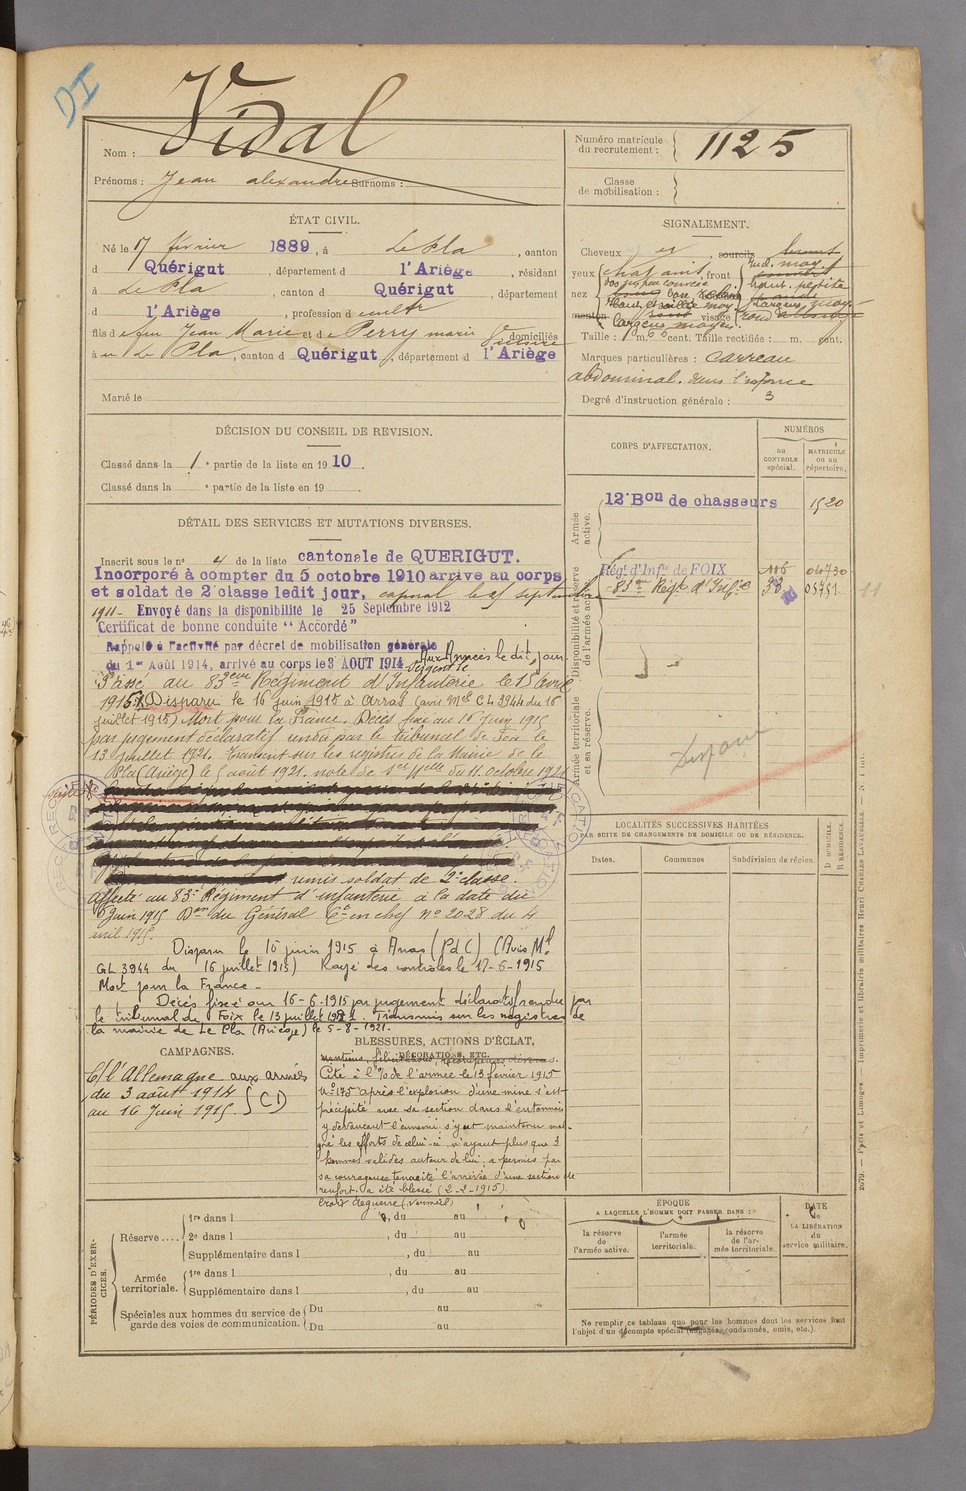 DI
Nom : Vidal
Prénoms : Jean alexandre Surnoms :
Numéro matricule du recrutement : 1125
Classe de mobilisation :
ÉTAT CIVIL.
Né le 17 février 1889, à Le Pla, canton
d Quérigut, département d l'Ariège, résidant
à Le Pla, canton d Quérigut, département
d l'Ariège, profession d cultr
fils d e feu Jean Marie et d e Perry marie domiciliés
à au Le Pla, canton d Quérigut, département d l'Ariège
Marié le
SIGNALEMENT.
Cheveux sourcils
yeux chatains, front
nez
menton visage rond
largeur moyen.
Taille : 1 m. 66 cent. Taille rectifiée : m. cent.
Marques particulières : carreau
abdominal. dans l'enfance
Degré d'instruction générale : 3
DÉCISION DU CONSEIL DE REVISION.
Classé dans la 1e partie de la liste en 1910.
Classé dans la e partie de la liste en 19
CORPS D'AFFECTATION.
NUMÉROS
AU CONTROLE spécial.
MATRICULE ou au répertoire.
Armée active.
12e Bon de chasseurs 1520
Disponibilité et réserve de l'armée active.
Régt d'Infie de FOIX 04730
83eme Régt d'Infie 33 05751
11
Armée territoriale et sa réserve.
Disparu
DÉTAIL DES SERVICES ET MUTATIONS DIVERSES.
Inscrit sous le no 4 de la liste cantonale de QUERIGUT.
Incorporé à compter du 5 octobre 1910 arrivé au corps
et soldat de 2e classe ledit jour, caporal le 25 septembre
1911 - Envoyé dans la disponibilité le 25 Septembre 1912
Certificat de bonne conduite "Accordé"
Rappelé à l'activité par décret de mobilisation générale
du 1er Août 1914, arrivé au corps le 3 AOUT 1914 Aux Armées le dit jour
Passé au 83eme Régiment d'Infanterie le 15 Avril
1915. Disparu le 16 juin 1915 à Arras (avis Mel CL 3944 du 16
juillet 1915) Mort pour la France. Décès fixé au 16 Juin 1915
par jugement déclaratif rendu par le tribunal de Foix le
13 Juillet 1921. Transcrit sur les registres de la Mairie de le
Pla (Ariège) le 5 août 1921. note de du 11 octobre 1921
remis soldat de 2e classe.
Affecté au 83e Régiment d'infanterie à la date du
Juin 1915 Don du Général Ct en chef No 2028 du 4
avril 1915.
Disparu le 16 juin 1915 à Arras (PdC) (Avis Ml
GL 3944 du 16 juillet 1915) Rayé des contrôles le 17-6-1915
Mort pour la France -
Décès fixé au 16-6-1915 par jugement déclaratif rendu par
le tribunal de Foix le 13 juillet 1921. Transmis sur les registres de
la mairie de Le Pla (Ariège) le 5-8-1921.
LOCALITÉS SUCCESSIVES HABITÉES
PAR SUITE DE CHANGEMENTS DE DOMICILE OU DE RÉSIDENCE.
Dates.
Communes
Subdivision de région
D DOMICILE.
R RÉSIDENCE.
CAMPAGNES.
C/ l'Allemagne aux armées
du 3 août 1914
au 16 Juin 1915 CD
BLESSURES, ACTIONS D'ÉCLAT,
DÉCORATIONS, ETC.
Cité à l'O/ de l'armée le 13 février 1915
No 175 "Après l'explosion d'une mine s'est
précipité avec sa section dans l'entonnoir
y devançant l'ennemi s'y est maintenu mal-
gré les efforts de celui-ci n'ayant plus que 3
hommes valides autour de lui, a permis par
sa courageuse tenacité l'arrivée d'une section de
renfort. a été blessé (2-2-1915).
Croix de guerre (vermeil)
PÉRIODES D'EXERCICES.
Réserve ....
1re dans l , du au
2e dans l , du au
Supplémentaire dans l , du au
Armée territoriale.
1re dans l , du au
Supplémentaire dans l , du au
Spéciales aux hommes du service de garde des voies de communication.
Du au
Du au
ÉPOQUE
A LAQUELLE L'HOMME DOIT PASSER DANS :
la réserve de l'armée active.
l'armée territoriale.
la réserve de l'armée territoriale.
DATE de LA LIBÉRATION du service militaire.
Ne remplir ce tableau que pour les hommes dont les services font
l'objet d'un décompte spécial (engagés, condamnés, omis, etc.).
2679. — Paris et Limoges Imprimerie et librairie militaires Henri CHARLES-LAVAUZELLE.